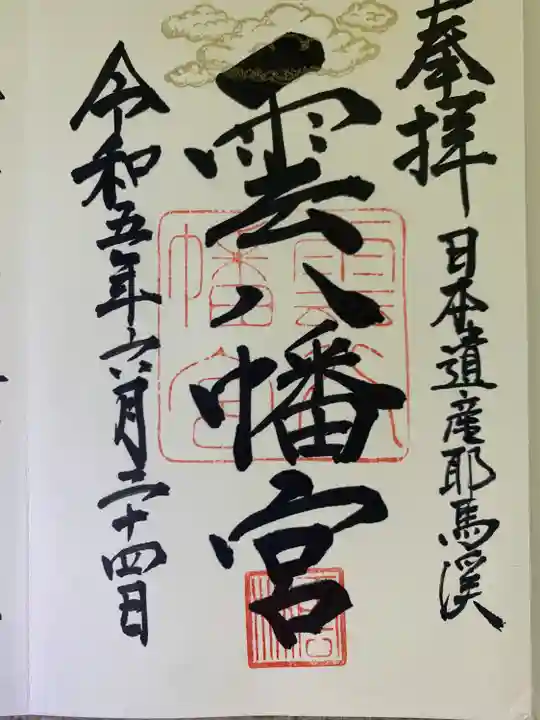 奉拝
日本遺産耶馬溪
雲八幡宮
令和五年六月二十四日
雲八幡宮